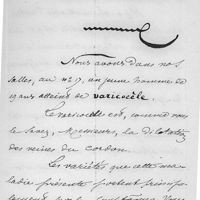 Nous avons dans nos
salles, au no 17, un jeune homme de
19 ans atteint de varicocèle.
Le varicocèle est, comme vous
le savez, Messieurs, la dilatation
des veines du cordon.
Les variétés que cette ma-
ladie présente portent principa-
lement sur